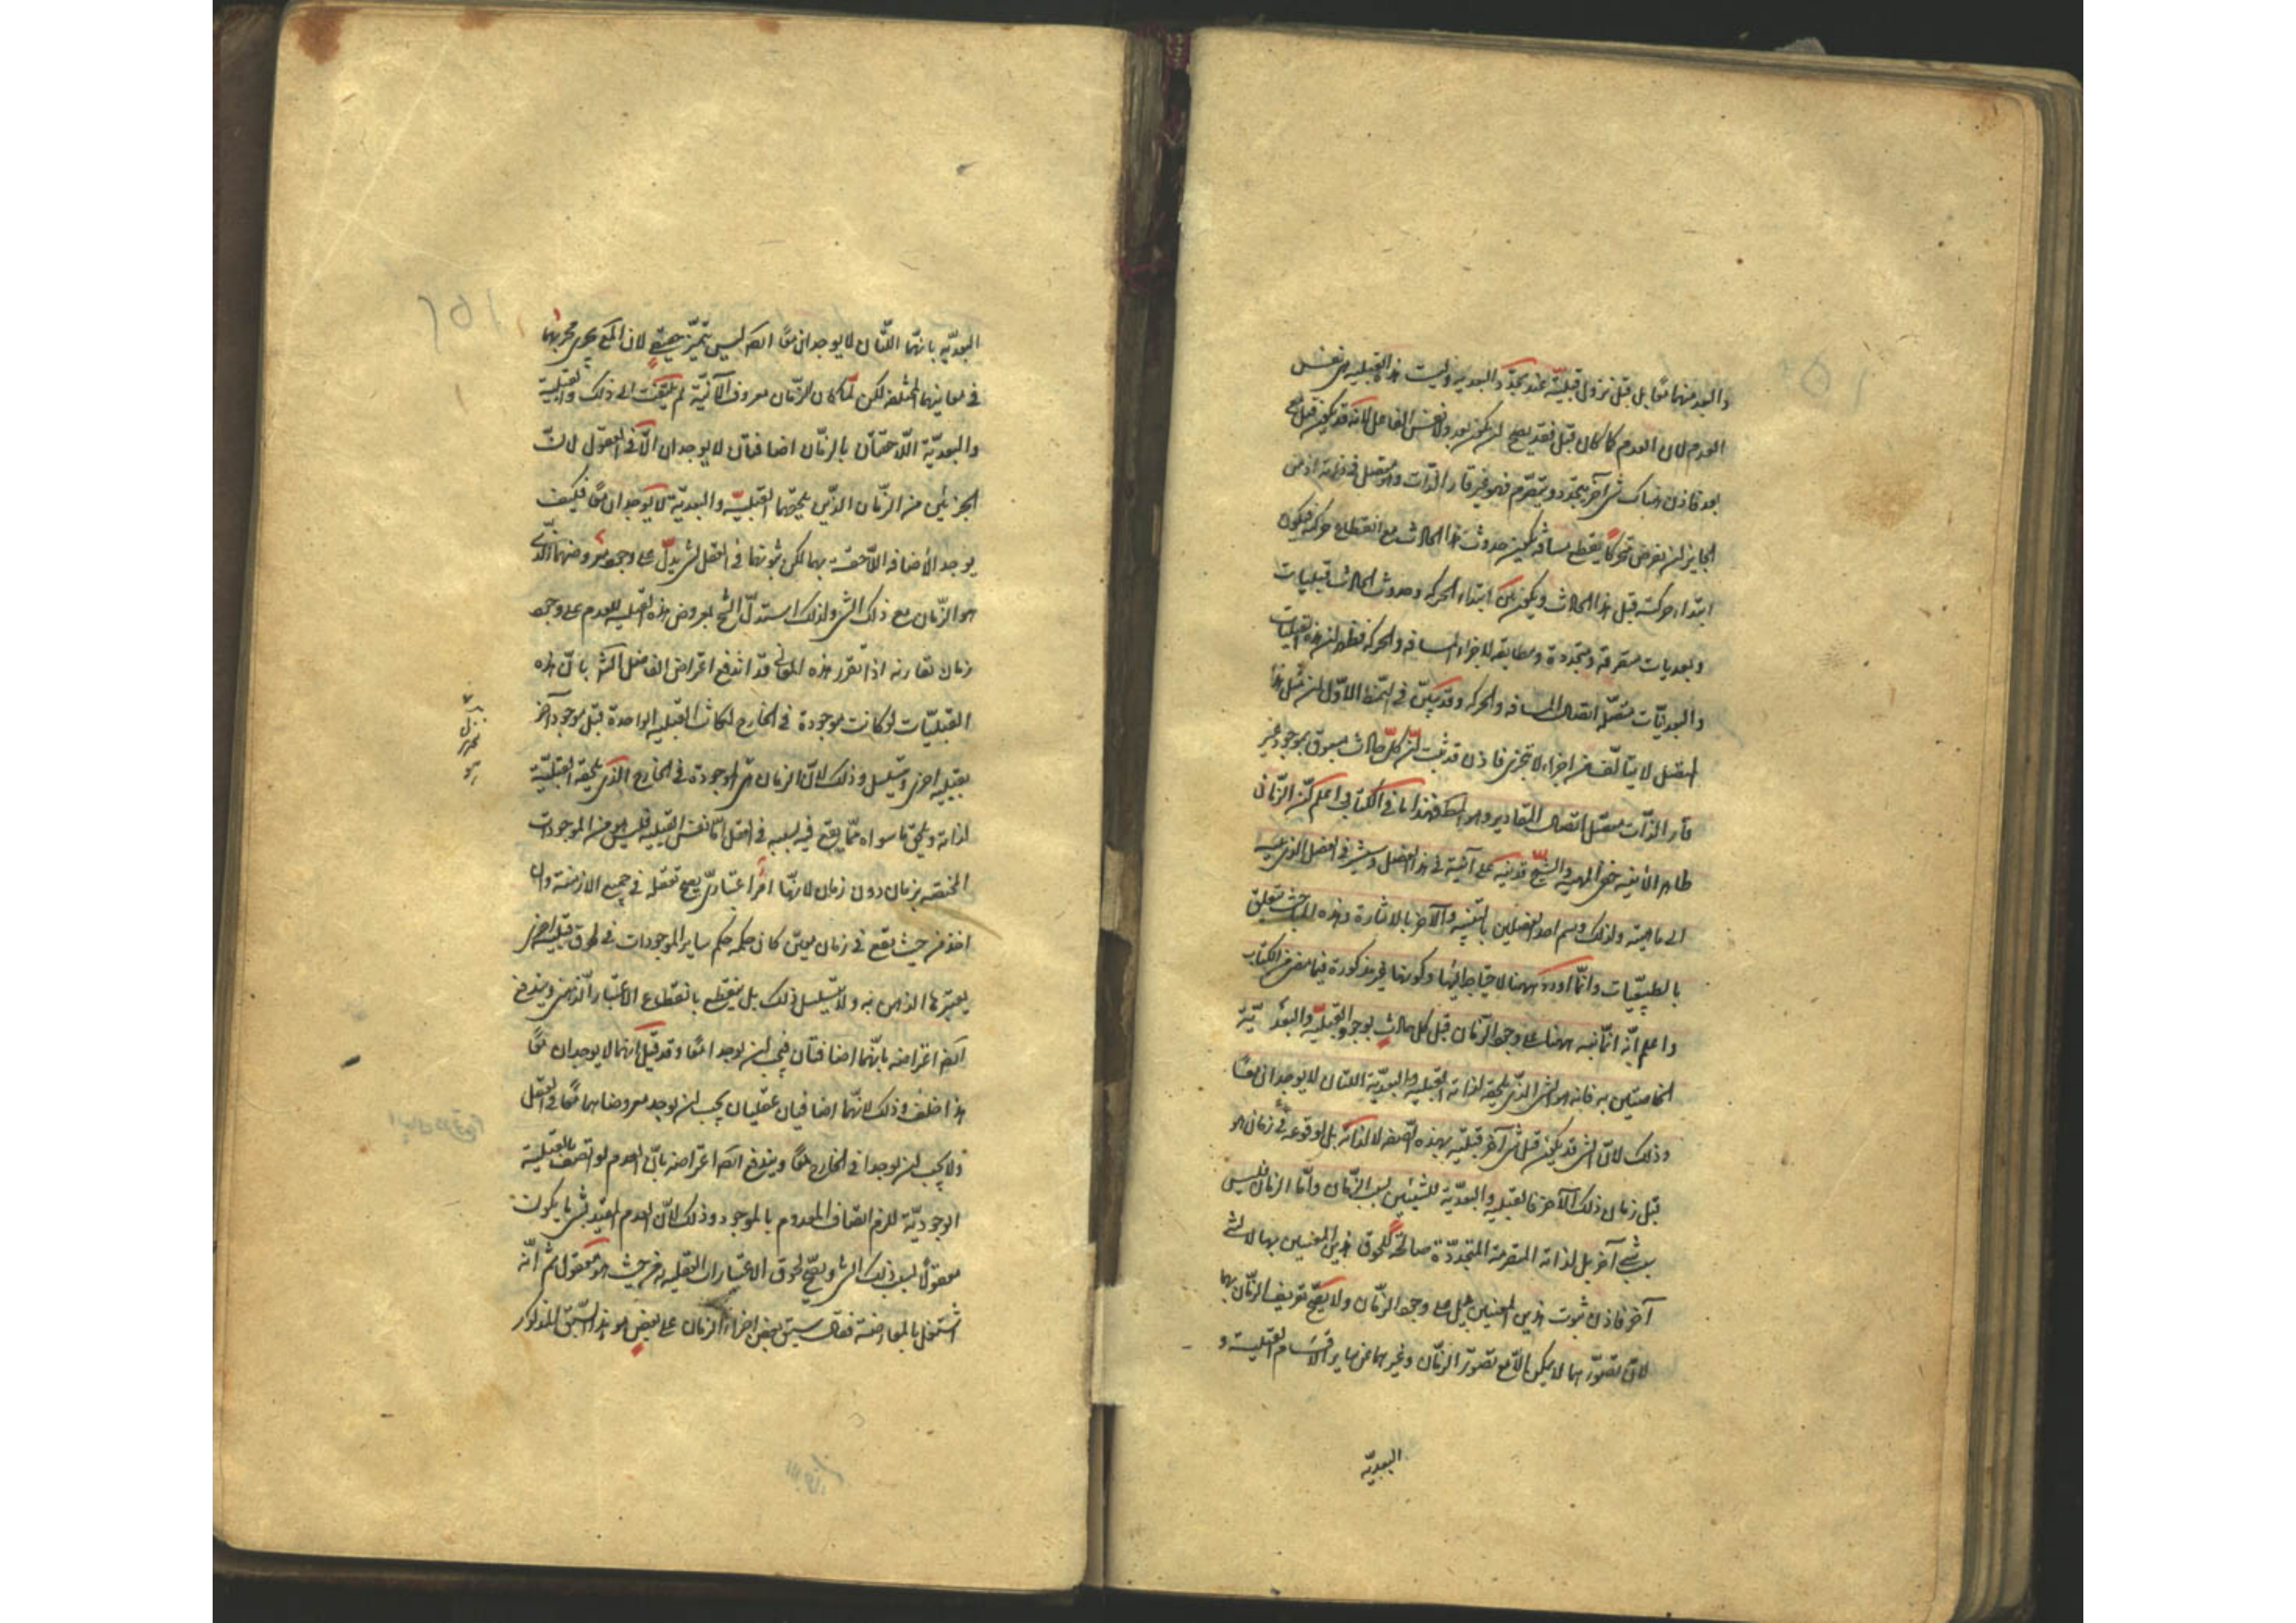 والبعد منهما معًا بل قبل تزول قبليّة عند تجدّد البعديه وليست هذه القبليه هى نفس
العدم لان العدم كما كان قبل فقد يصح ان يكون بعد ولا نفس الفاعل لانه قد يكون قبل و مع
بعد فاذن هناك شئ آخر يتجدد و يتصرّم فهو غير قار الذّات وهو متصل فى ذاته اذ من
الجايز ان نفرض متحركًا يقطع مسافة يكون حدوث هذا الحادث مع انقطاع حركته فيكون
ابتداء حركته قبل هذا الحادث ويكون بين ابتداء الحركه وحدوث الحادث قبليات
وبعديات متصرمة ومتجددة ومطابقه لاجزاء المسافه والحركه فظهر ان هذه القبليات
والبعديّات متصله اتصال المسافه والحركه وقد تبيّن فى النمط الاوّل ان مثل هذا
المتصل لا يتالّف من اجزاء لا تتجزى فاذن قد ثبت انّ كلّ حادث مسبوق بموجود غير
قار الذّات متصل اتصال المقادير وهو المط فهذا ما فى الكتاب واعلم انّ الزّمان
ظاهر الأنيه خفى المهيه والشيخ قد نبه على آنيته فى هذا الفصل وسيشير فى الفصل الذى يليه
الى ماهيته ولذلك وسم احد الفصلين بالتنبيه والآخر بالاشارة وهذه المباحث تتعلق
بالطبيعيّات وانّما اورده ههنا لاحتياجه اليها وكونها غير مذكورة فيما مضى من الكتاب
واعلم انّه انّما نبه ههنا على وجود الزّمان قبل كل حادث بوجود القبليّة والبعديّة
الخاصتين به فانه هو الشئ الذّى يلحقه لذاته القبليه والبعديّة اللتان لا يوجدان معًا
وذلك لانّ الشئ قد يكون قبل شئ آخر قبليّة بهذه الصفه لا لذاته بل لوقوعه فى زمان هو
قبل زمان ذلك الآخر فالقبليه والبعديّة للشيئين بسبب الزّمان وامّا الزمان فليس
بسبب شئ آخر بل لذاته المتصرمة المتجدّدة صالحة للحوق هذين المعنيين بها لا لشئ
آخر فاذن ثبوت هذين المعنيين يدل على وجود الزّمان ولا يصحّ تعريف الزّمان بهما
لانّ تصوّرهما لا يمكن الّا مع تصوّر الزّمان وغيرهما من ساير اقسام القبلية و
البعديّه
البعديّه بانهما اللتان لا يوجدان معًا ايضا ليس بتميّز حقيقى لان المعَ يجرى مجريهما
فى معانيها المختلفه لكن لمّا كان الزّمان معروف الآنيّة لم يلتفت الى ذلك والقبلية
والبعديّة اللّاحقتان بالزمّان اضافتان لا يوجدان الّا فى العقول لانّ
الجزئين من الزّمان الذّين يلحقهما القبليّة والبعديّة لا يوجدان معًا فكيف
يوجد الأضافه اللّاحقة بهما لكن ثبوتها فى العقل لشئ يدلّ على وجود معروضهما الذّى
هو الزّمان مع ذلك الشئ ولذلك استدلّ الشيخ بعروض هذه القبليه للعدم على وجود
زمان تقارنه اذا تقرر هذه المعانى قد اندفع اعتراض الفاضل الشه بانّ هذه
القبليّات لو كانت موجودة فى الخارج لكانت القبليه الواحدة قبل موجود آخر
بقبليه اخرى ويتسلسل وذلك لانّ الزمان هى الموجودة فى الخارج الذى تلحقه القبليّة
لذاته ويلحق ما سواه ممّا يقع فيه بسببه فى العقل امّا نفس القبليه فليس هو من الموجودات
المختصه بزمان دون زمان لانّها امر اعتبارىّ يصح تعقله فى جميع الازمنة وان
اخذ من حيث يقع فى زمان معيّن كان حكمه حكم ساير الموجودات فى لحوق قبليه اخرى
يعتبرها الذهن به ولا يتسلسل ذلك بل ينقطع بانقطاع الاعتبار الذّهنى ويندفع
ايضا اعتراضه بانّهما اضافتان فيجب ان يوجدا معًا وقد قيل انهما لا يوجدان معًا
هذا خلف وذلك لانّهما اضافيان عقليان يجب ان يوجد معروضاهما معًا فى العقل
ولا يجب ان يوجدا فى الخارج معًا ويندفع ايضا اعتراضه بانّ العدم لو اتصف بالقبلية
الوجوديّة للزم اتصاف المعدوم بالموجود وذلك لانّ العدم المقيّد بشئ ما يكون
معقولًا بسبب ذلك الشئ ويصحّ لحوق الاعتبارات العقليه به من حيث هو معقول ثمّ انّه
اشتغل بالمعارضة فقال سبق بعض اجزاء الزمان على بعض هو هذا السّبق المذكور